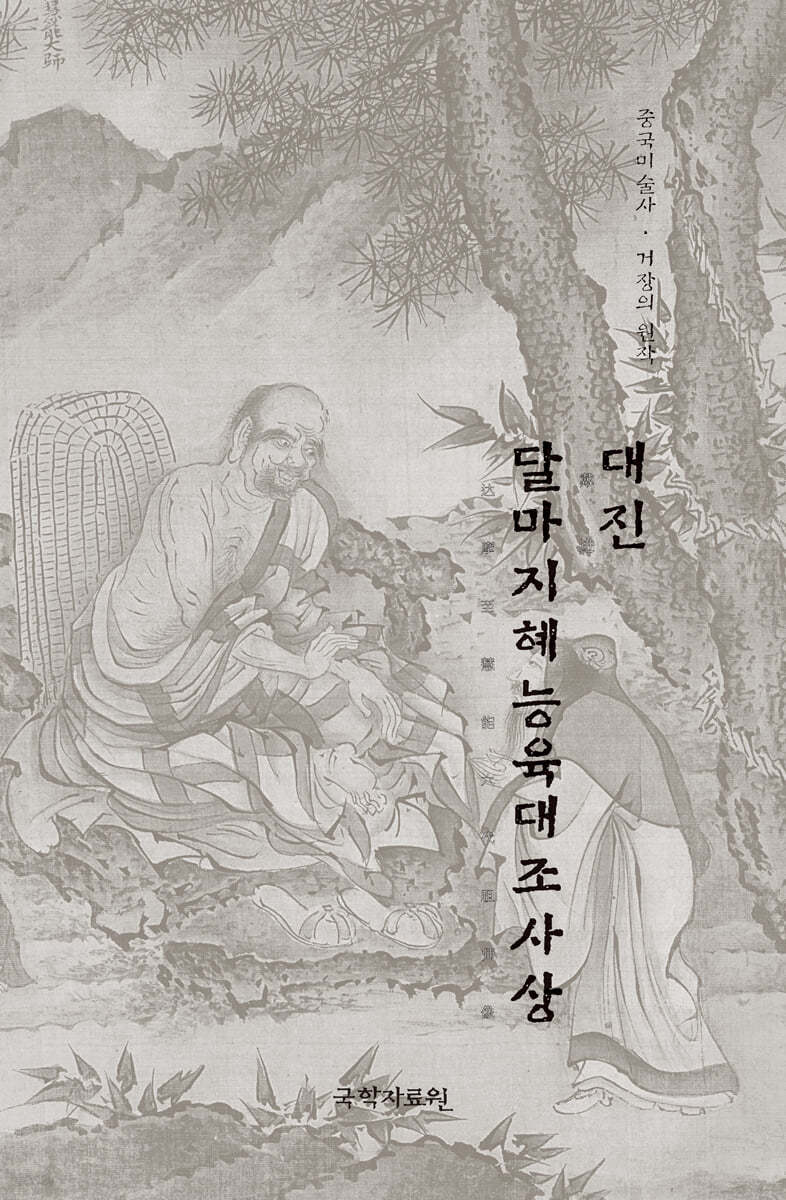 慧能大師
중국미술사 · 거장의 원작
대진
戴进
달마지혜능육대조사상
达摩至慧能六代祖师像
국학자료원